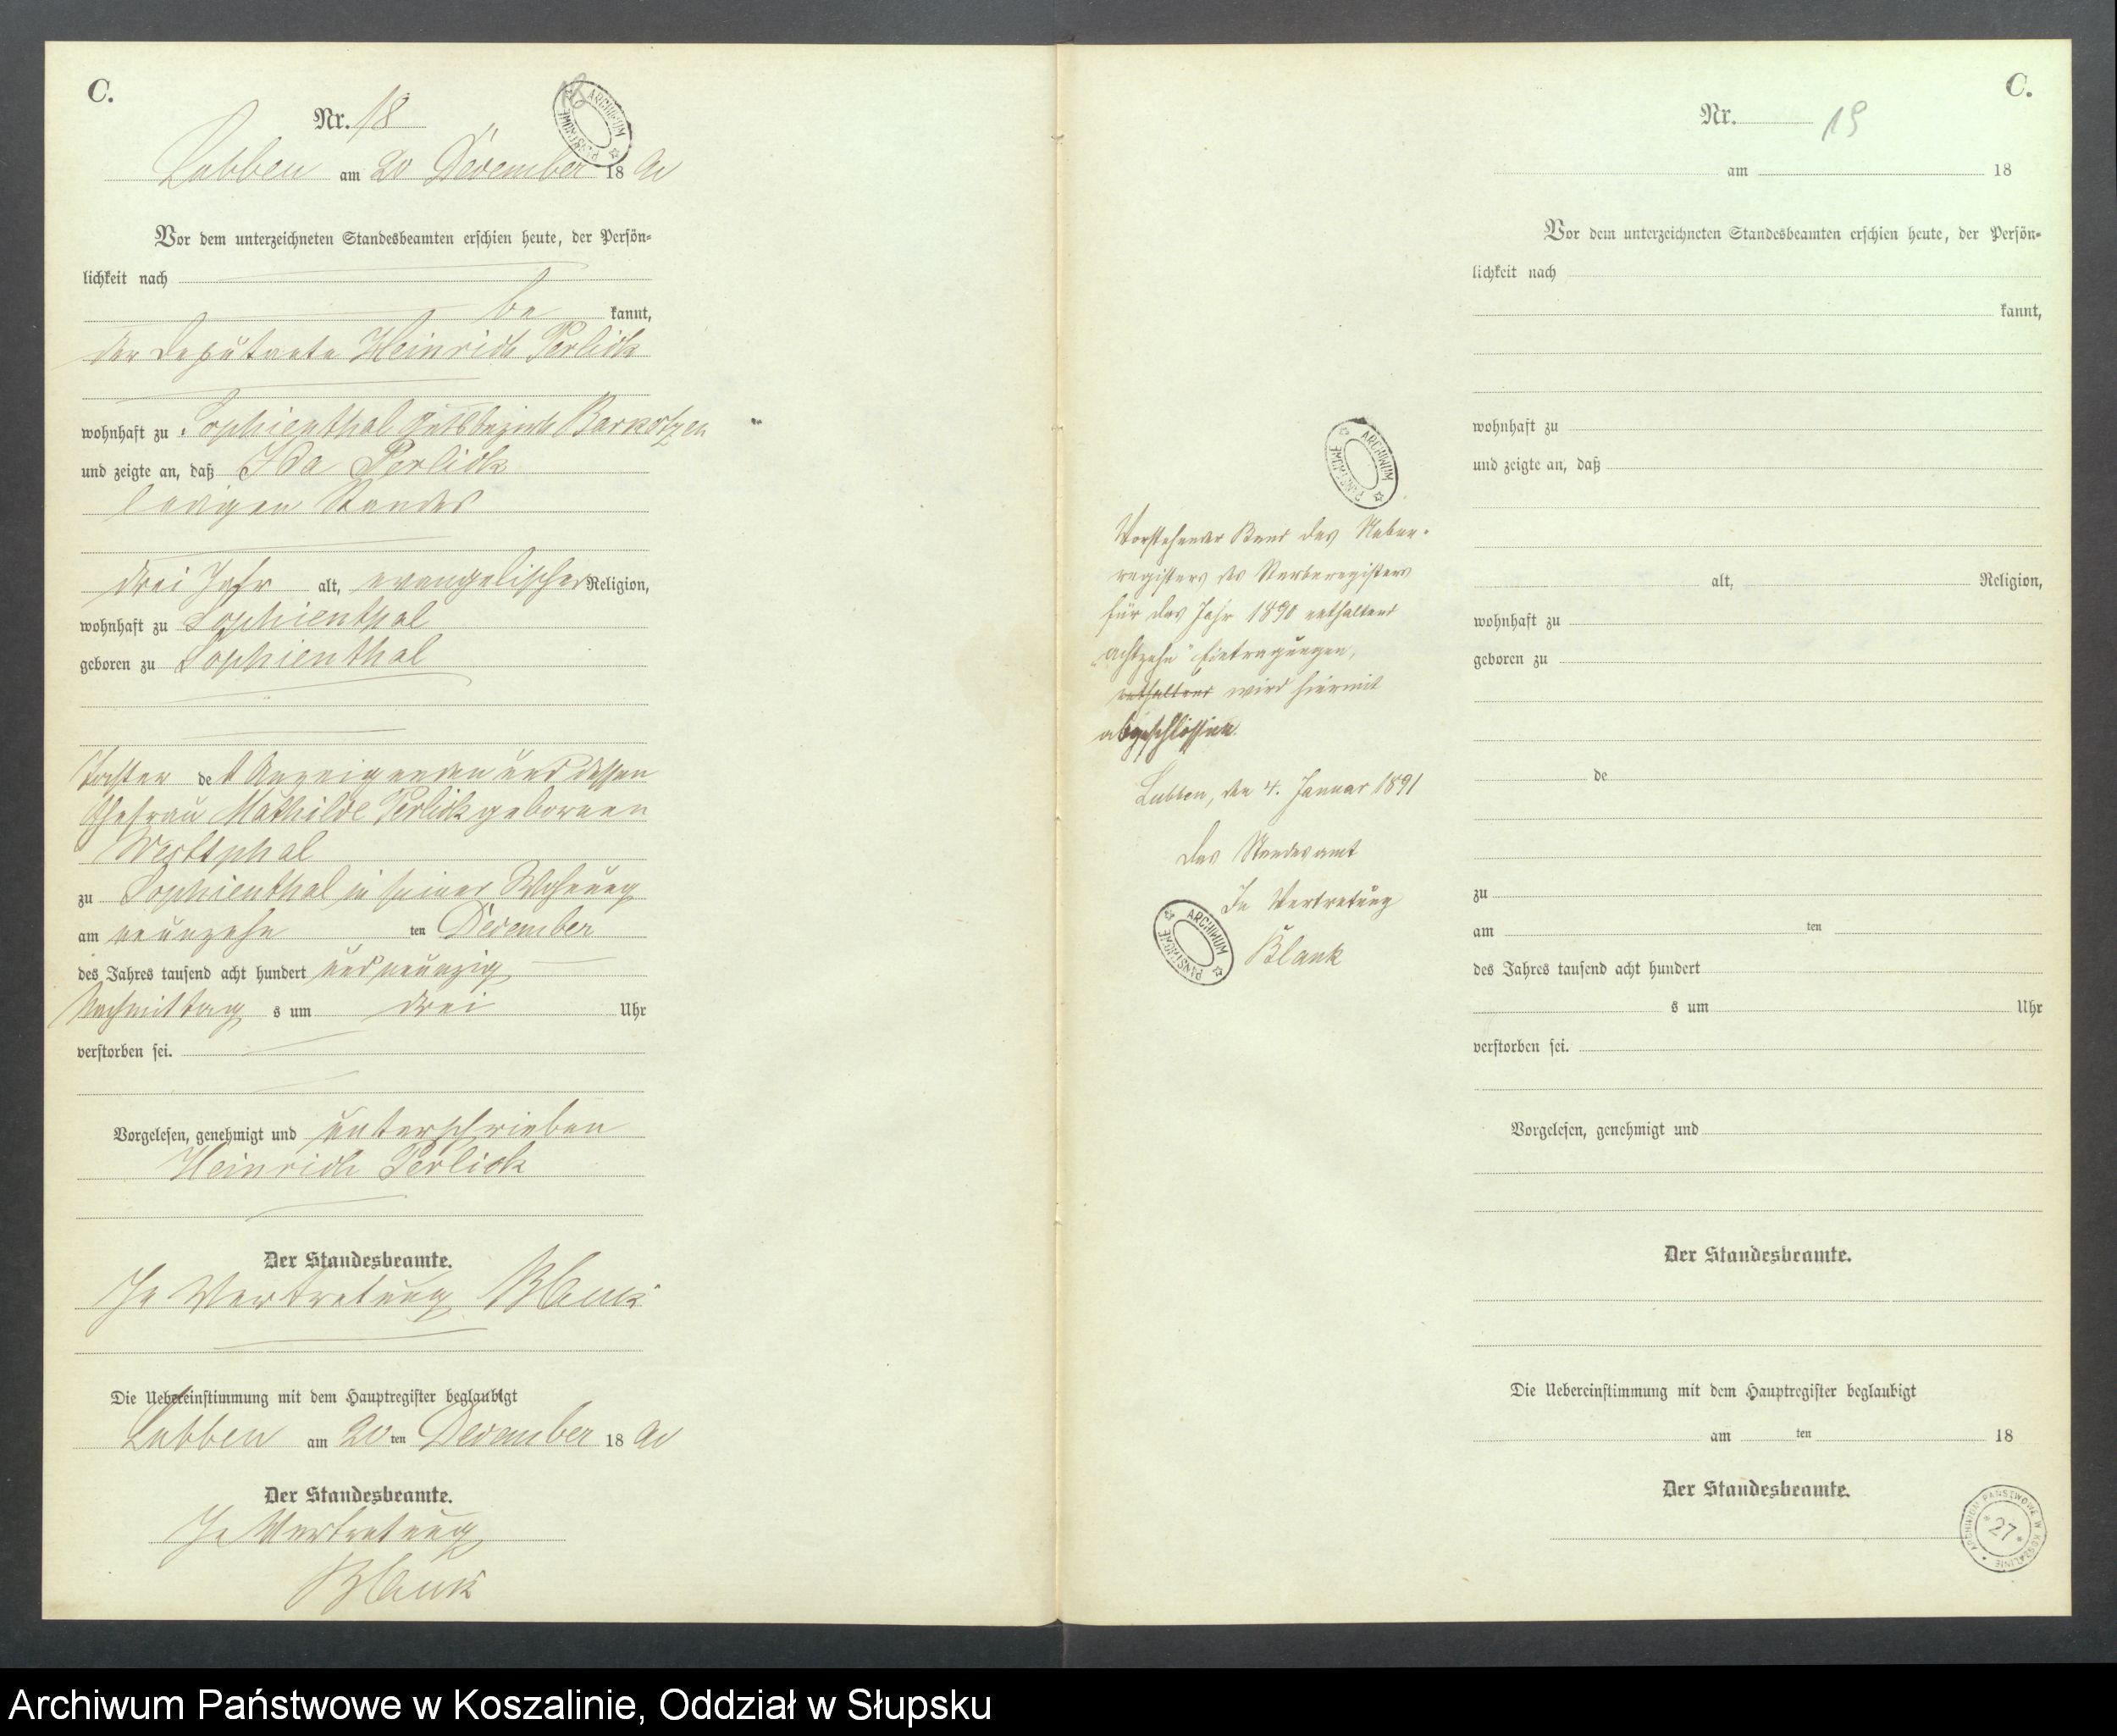 C.
Nr. 18
18
ARCHIWUM PAŃSTWOWE
Labben am 20 December 18 90
Vor dem unterzeichneten Standesbeamten erschien heute, der Persön-
lichkeit nach
be kannt,
der Deputante Heinrich Perlick
wohnhaft zu Sophienthal Gutsbezirk Barkotzen
und zeigte an, daß Ida Perlick
ledigen Standes
drei Jahr alt, evangelischer Religion,
wohnhaft zu Sophienthal
geboren zu Sophienthal
Tochter de s Anzeigenden und dessen
Ehefrau Mathilde Perlick geborenen
Westphal
zu Sophienthal in seiner Wohnung
am neunzehn ten December
des Jahres tausend acht hundert und neunzig
Nachmittag s um drei Uhr
verstorben sei.
Vorgelesen, genehmigt und unterschrieben
Heinrich Perlick
Der Standesbeamte.
In Vertretung Blank
Die Uebereinstimmung mit dem Hauptregister beglaubigt
Labben am 20 ten December 18 90
Der Standesbeamte.
In Vertretung
Blank
ARCHIWUM PAŃSTWOWE
Vorstehender Band des Neben-
registers des Sterberegisters
für das Jahr 1890 enthaltend
"achtzehn" Eintragungen,
enthaltend wird hiermit
abgeschlossen.
Labben, den 4. Januar 1891
Das Standesamt
In Vertretung
ARCHIWUM PAŃSTWOWE
Blank
C.
Nr. 19
am 18
Vor dem unterzeichneten Standesbeamten erschien heute, der Persön-
lichkeit nach
kannt,
wohnhaft zu
und zeigte an, daß
alt, Religion,
wohnhaft zu
geboren zu
de
zu
am ten
des Jahres tausend acht hundert
s um Uhr
verstorben sei.
Vorgelesen, genehmigt und
Der Standesbeamte.
Die Uebereinstimmung mit dem Hauptregister beglaubigt
am ten 18
Der Standesbeamte.
ARCHIWUM PAŃSTWOWE W KOSZALINIE
* 27 *
Archiwum Państwowe w Koszalinie, Oddział w Słupsku